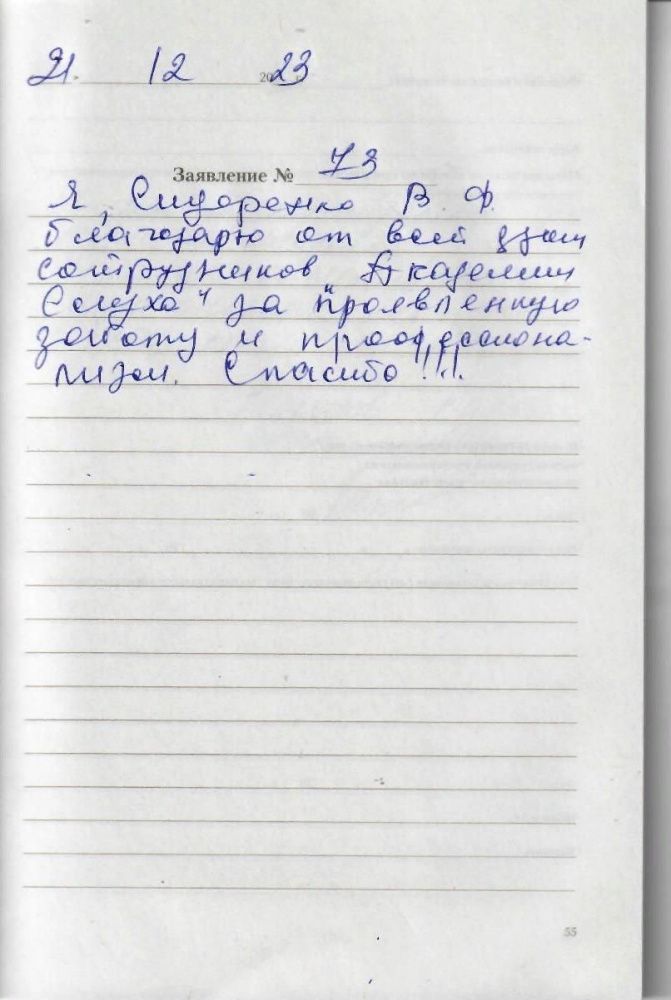 21. 12 2023
Заявление № 73
Я, Сидоренко В. Ф.
благодарю от всей души
сотрудников „Академии
Слуха" за проявленную
заботу и профессиона-
лизм. Спасибо!!!.
55